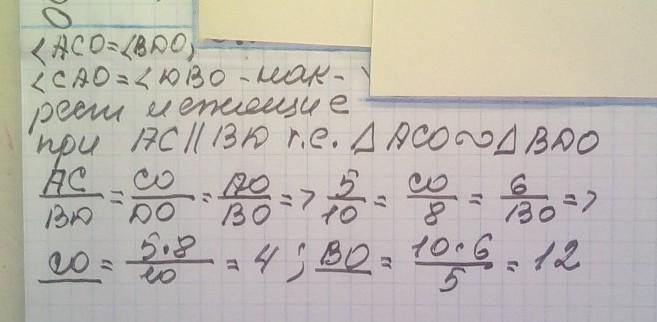 <ACO=<BDO,
<CAO=<DBO-нак-
рест лежащие
при AC||BD т.е. △ACO∾△BDO
AC/BD = CO/DO = AO/BO => 5/10 = CO/8 = 6/BO =>
CO = 5·8/10 = 4; BO = 10·6/5 = 12